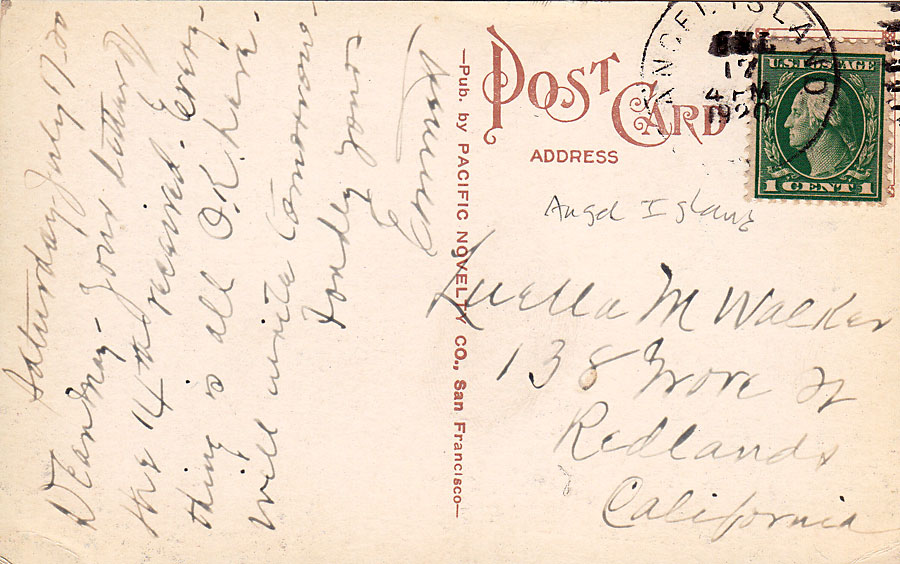 Saturday July 17 '20
Dear May - Your letter of
the 14th received. Every-
thing is all O.K. here.
Will write tomorrow
Fondly yours
—Pub. by PACIFIC NOVELTY CO., San Francisco—
POST CARD
ADDRESS
ANGEL ISLAND
JUL
17
4 PM
1920
U.S. POSTAGE
1 CENT 1
Angel Island
Luella M Walker
138 Grove St
Redlands
California